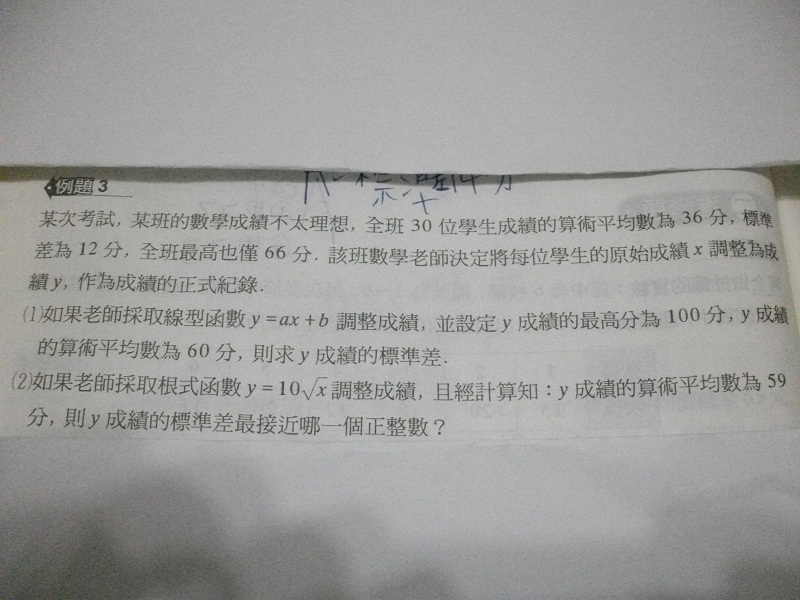 例題 3
某次考試，某班的數學成績不太理想，全班 30 位學生成績的算術平均數為 36 分，標準
差為 12 分，全班最高也僅 66 分．該班數學老師決定將每位學生的原始成績 x 調整為成
績 y，作為成績的正式紀錄．
⑴如果老師採取線型函數 y=ax+b 調整成績，並設定 y 成績的最高分為 100 分，y 成績
的算術平均數為 60 分，則求 y 成績的標準差．
⑵如果老師採取根式函數 y=10√x 調整成績，且經計算知：y 成績的算術平均數為 59
分，則 y 成績的標準差最接近哪一個正整數？